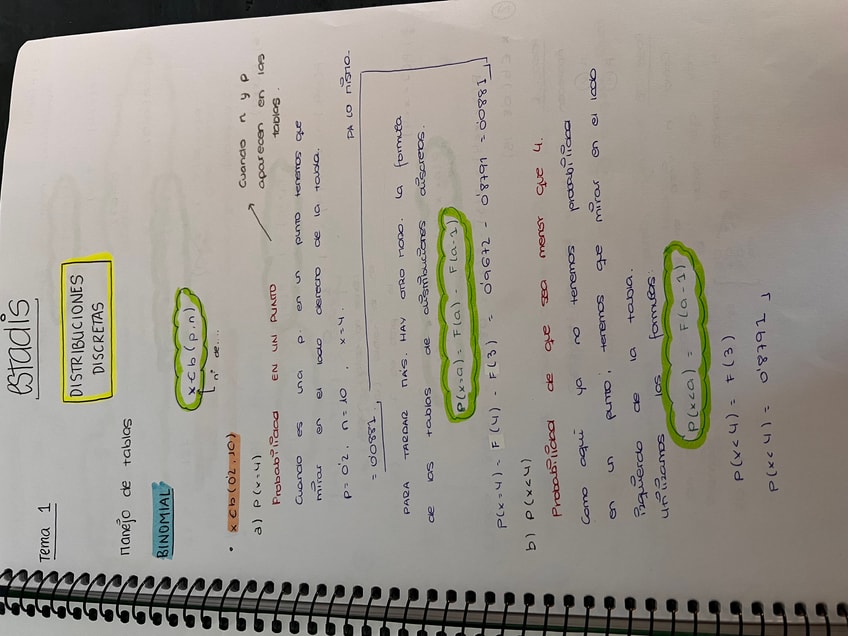 estadis
Tema 1
DISTRIBUCIONES
DISCRETAS
manejo de tablas
BINOMIAL
x ⊂ b (p,n)
nº de...
• x ⊂ b (0'2, 10)
a) P(x=4)
Probabilidad EN UN PUNTO → Cuando n y p
aparecen en las
tablas.
Cuando es una p. en un punto tenemos que
mirar en el lado derecho de la tabla.
P=0'2, n=10, x=4.
= 0'0881
DA LO MISMO.
PARA TARDAR MÁS. HAY OTRO MODO. La formula
de las tablas de distribuciones discretas.
P(x=a) = F(a) - F(a-1)
P(x=4) = F(4) - F(3) = 0'9672 - 0'8791 = 0'0881
b) P(x<4)
Probabilidad de que sea menor que 4.
Como aquí ya no tenemos probabilidad
en un punto, tenemos que mirar en el lado
izquierdo de la tabla.
Utilizamos las formulas:
P(x<a) = F(a-1)
P(x<4) = F(3)
P(x<4) = 0'8791